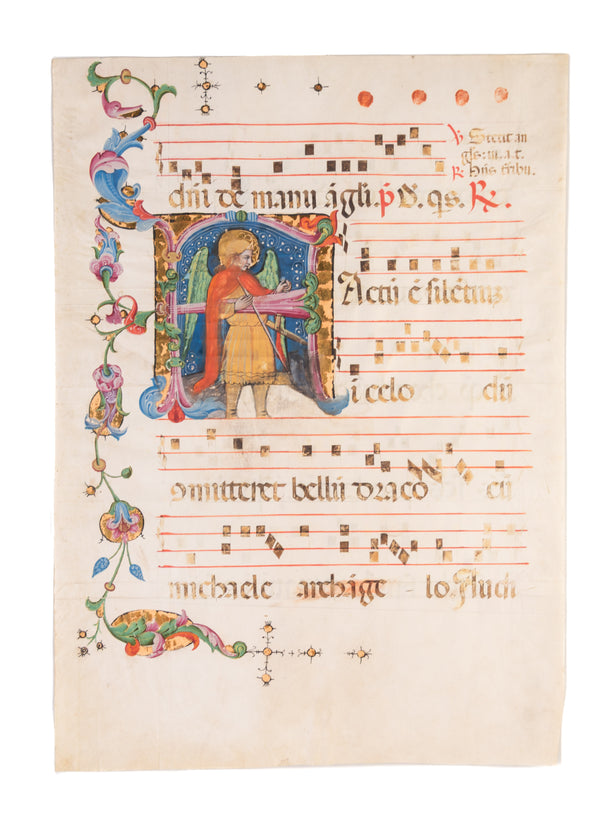 ℣ Stetit an
gls. iu. a. t.
dñi de manu āgli. p̄ D. qs. ℟.
℟ Hūs
Actū ē silētiuz
i celo dū
9mitteret bellū draco cū
michaele archāge lo. Audi